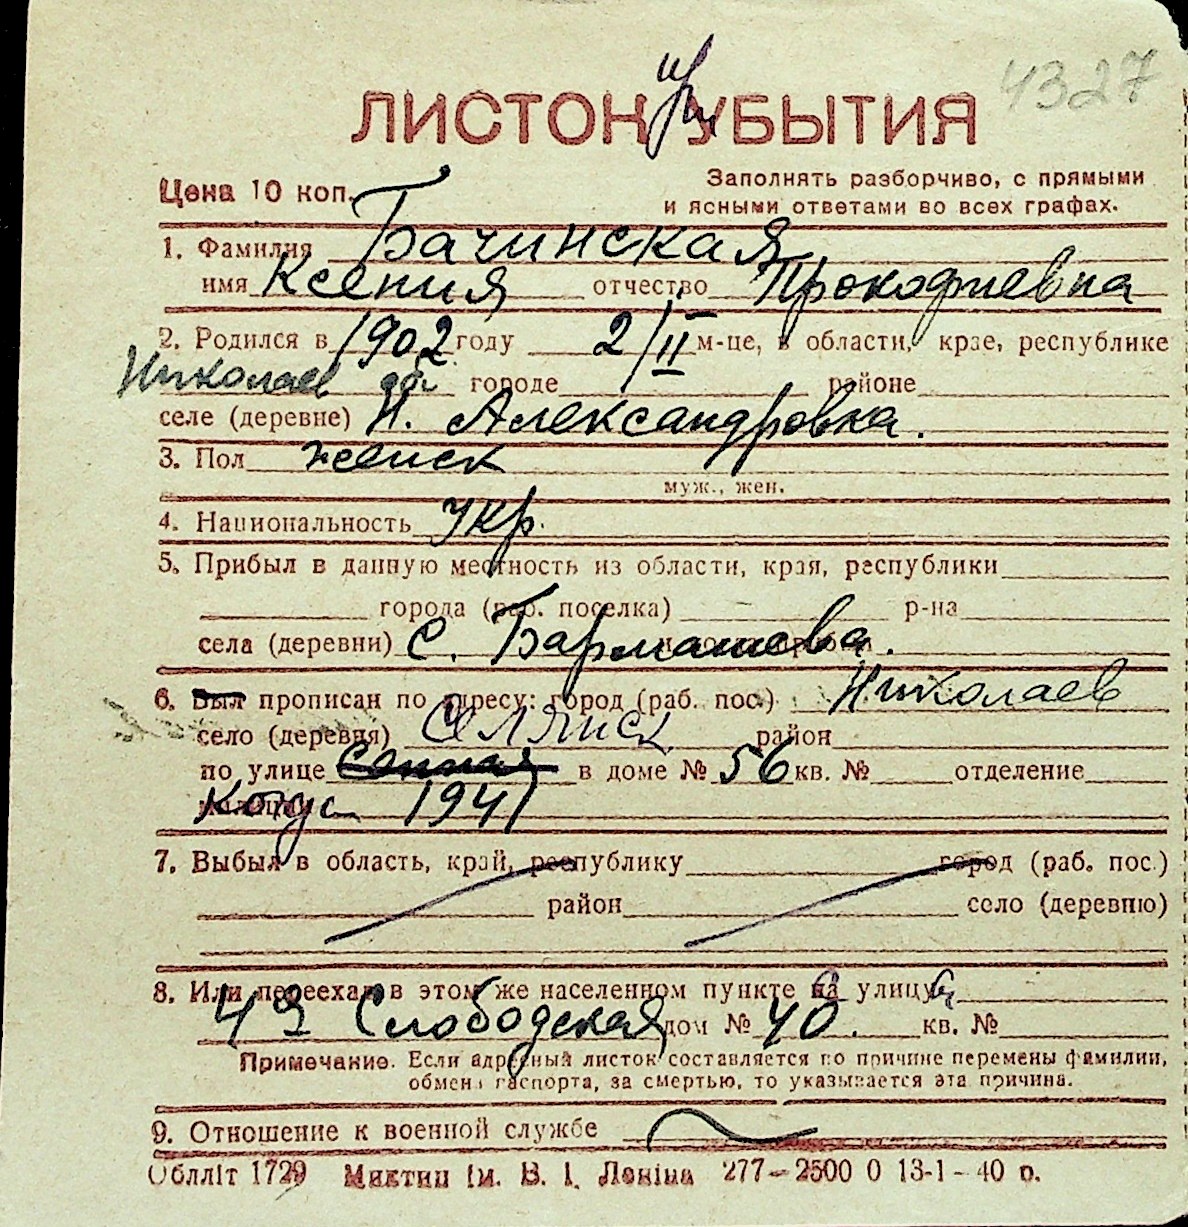 4327
при
ЛИСТОК УБЫТИЯ
Цена 10 коп.
Заполнять разборчиво, с прямыми
и ясными ответами во всех графах.
1. Фамилия Бачинская
имя Ксения отчество Прокофиевна
2. Родился в 1902 году 2/II м-це, в области, крае, республике
Николаев обл городе районе
селе (деревне) Н. Александровка.
3. Пол женск
муж., жен.
4. Национальность укр.
5. Прибыл в данную местность из области, края, республики
города (раб. поселка) р-на
села (деревни) с. Бармашева.
6. Был прописан по адресу: город (раб. пос.) Николаев
село (деревня) Селянск район
по улице Сенная в доме № 56 кв. № отделение
Когда 1941
7. Выбыл в область, край, республику город (раб. пос.)
район село (деревню)
8. Или переехал в этом же населенном пункте на улицу
4я Слободская дом № 40. кв. №
Примечание. Если адресный листок составляется по причине перемены фамилии,
обмена паспорта, за смертью, то указывается эта причина.
9. Отношение к военной службе
Облліт 1729 Миктип ім. В. І. Леніна 277—2500 0 13-1-40 р.